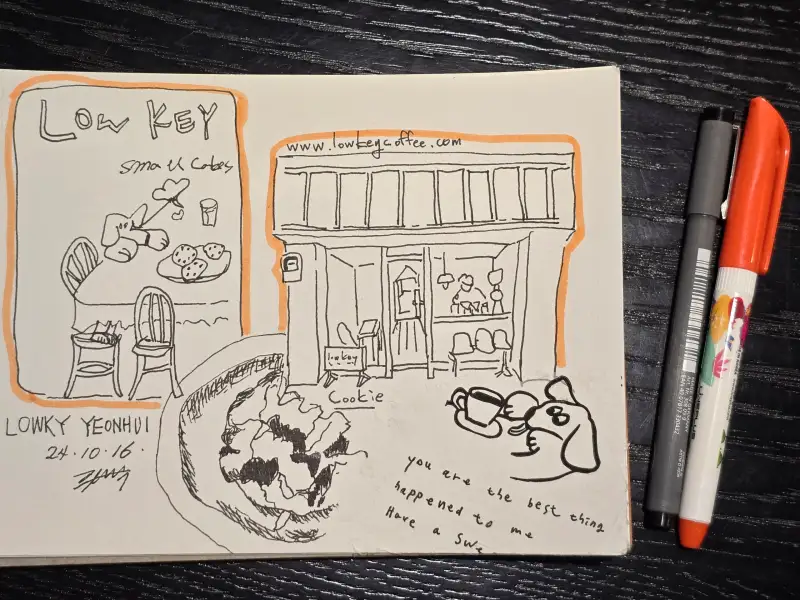 LOW KEY
small cakes
www.lowkeycoffee.com
lowkey
Cookie
LOWKY YEONHUI
24.10.16.
you are the best thing
happened to me
Have a